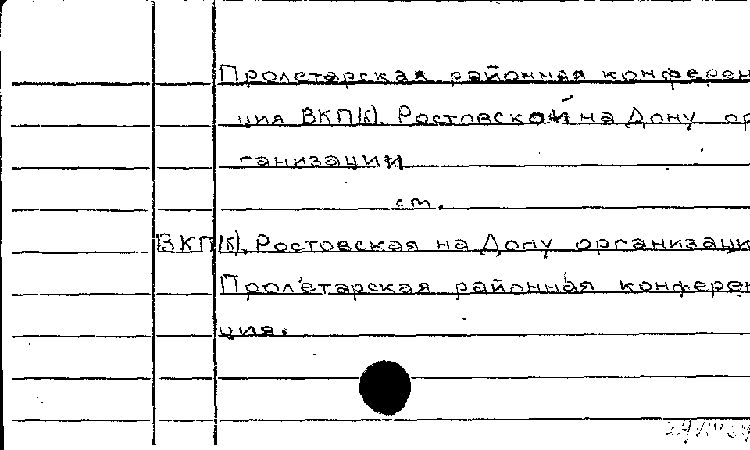 Пролетарская районная конферен
ция ВКП(б). Ростовской на Дону ор
ганизации
см.
ВКП(б). Ростовская на Дону организаци
Пролетарская районная конферен
ция.